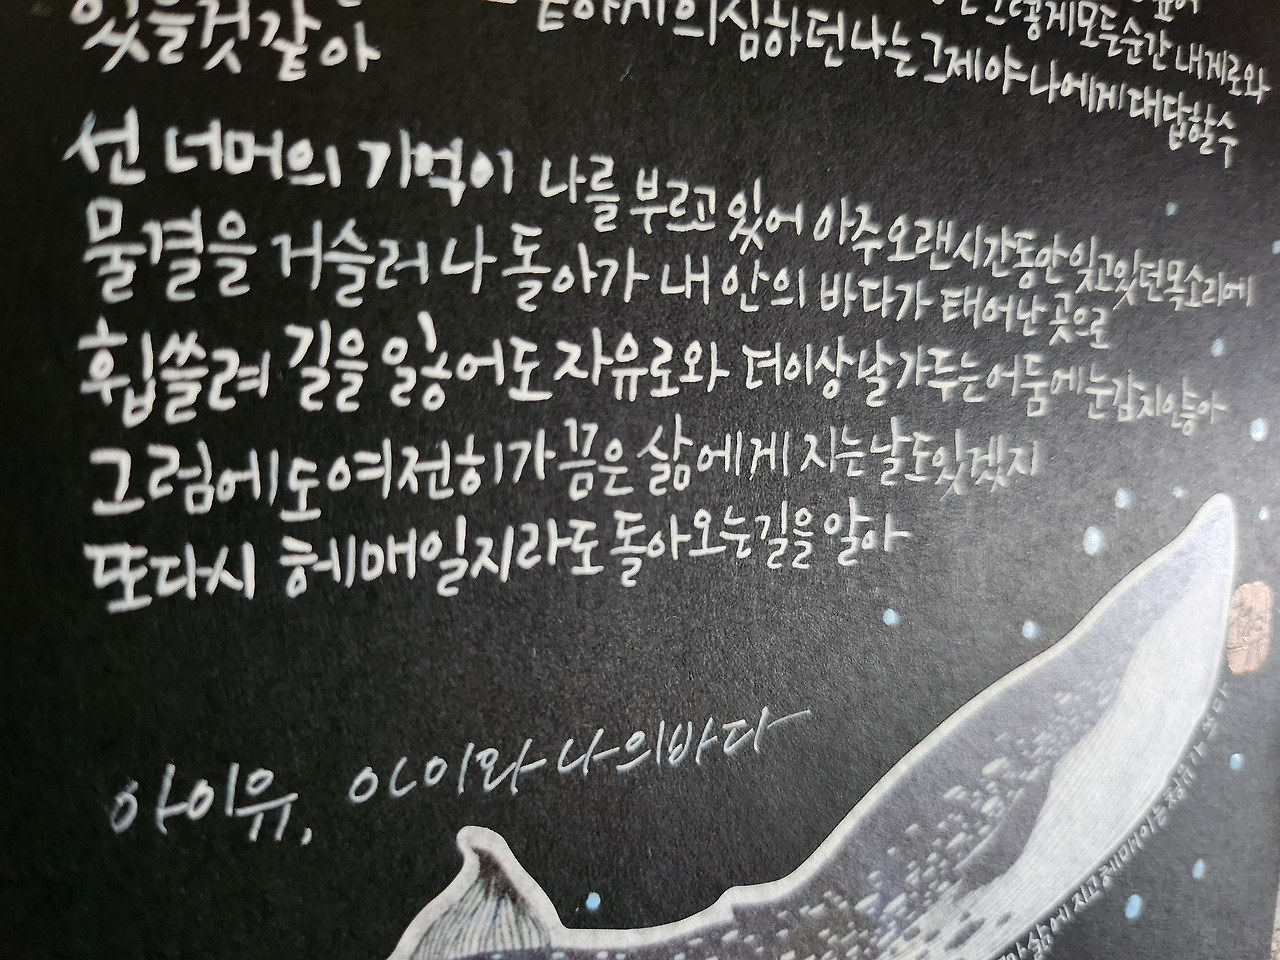 있을것같아
의심하던 나는 그제야 나에게 대답할 수
모든 순간 내게로 와
선 너머의 기억이 나를 부르고 있어 아주 오랜 시간 동안 잊고 있던 목소리에
물결을 거슬러 나 돌아가 내 안의 바다가 태어난 곳으로
휩쓸려 길을 잃어도 자유로와 더이상 날 가두는 어둠에 눈감지 않아
그럼에도 여전히 가끔은 삶에게 지는 날도 있겠지
또다시 헤매일지라도 돌아오는 길을 알아
아이유, 아이와 나의 바다
삶에 지고 헤매이는